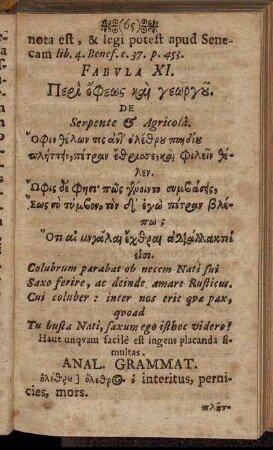 (65)
nota est, & legi potest apud Sene-
cam lib. 4. Benef. c. 37. p. 453.
FABVLA XI.
Περὶ ὄφεως καὶ γεωργοῦ.
DE
Serpente & Agricolâ.
Ὄφιν θέλων τις ἀντ' ὀλέθρου παιδίου
πλήττην, πέτραν ἔθραυσε, καὶ φιλεῖν θέ-
λεν.
Ὄφις δέ φησι· πῶς γένοιτο σύμβασις,
Ἕως σὺ τύμβον, τὸν δ' ἐγὼ πέτραν βλέ-
πω;
Ὅτι αἱ μεγάλαι ἔχθραι δυσάλλακτοί
εἰσι.
Colubrum parabat ob necem Nati sui
Saxo ferire, ac deinde amare Rusticus.
Cui coluber: inter nos erit quæ pax,
quoad
Tu busta Nati, saxum ego isthoc videro?
Haut unqvam facilè est ingens placanda si-
multas.
ANAL. GRAMMAT.
ὀλέθρου] ὄλεθρος ὁ interitus, perni-
cies, mors.
πλήτ-